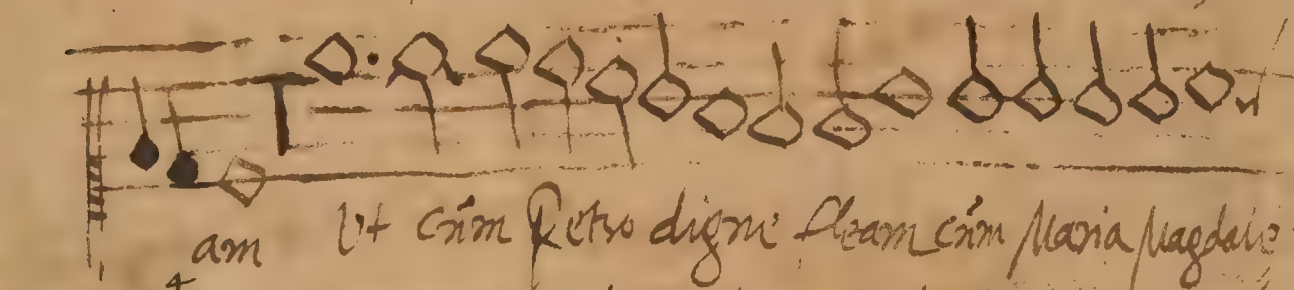 am Ut cum Petro digne fleam cum Maria Magdale